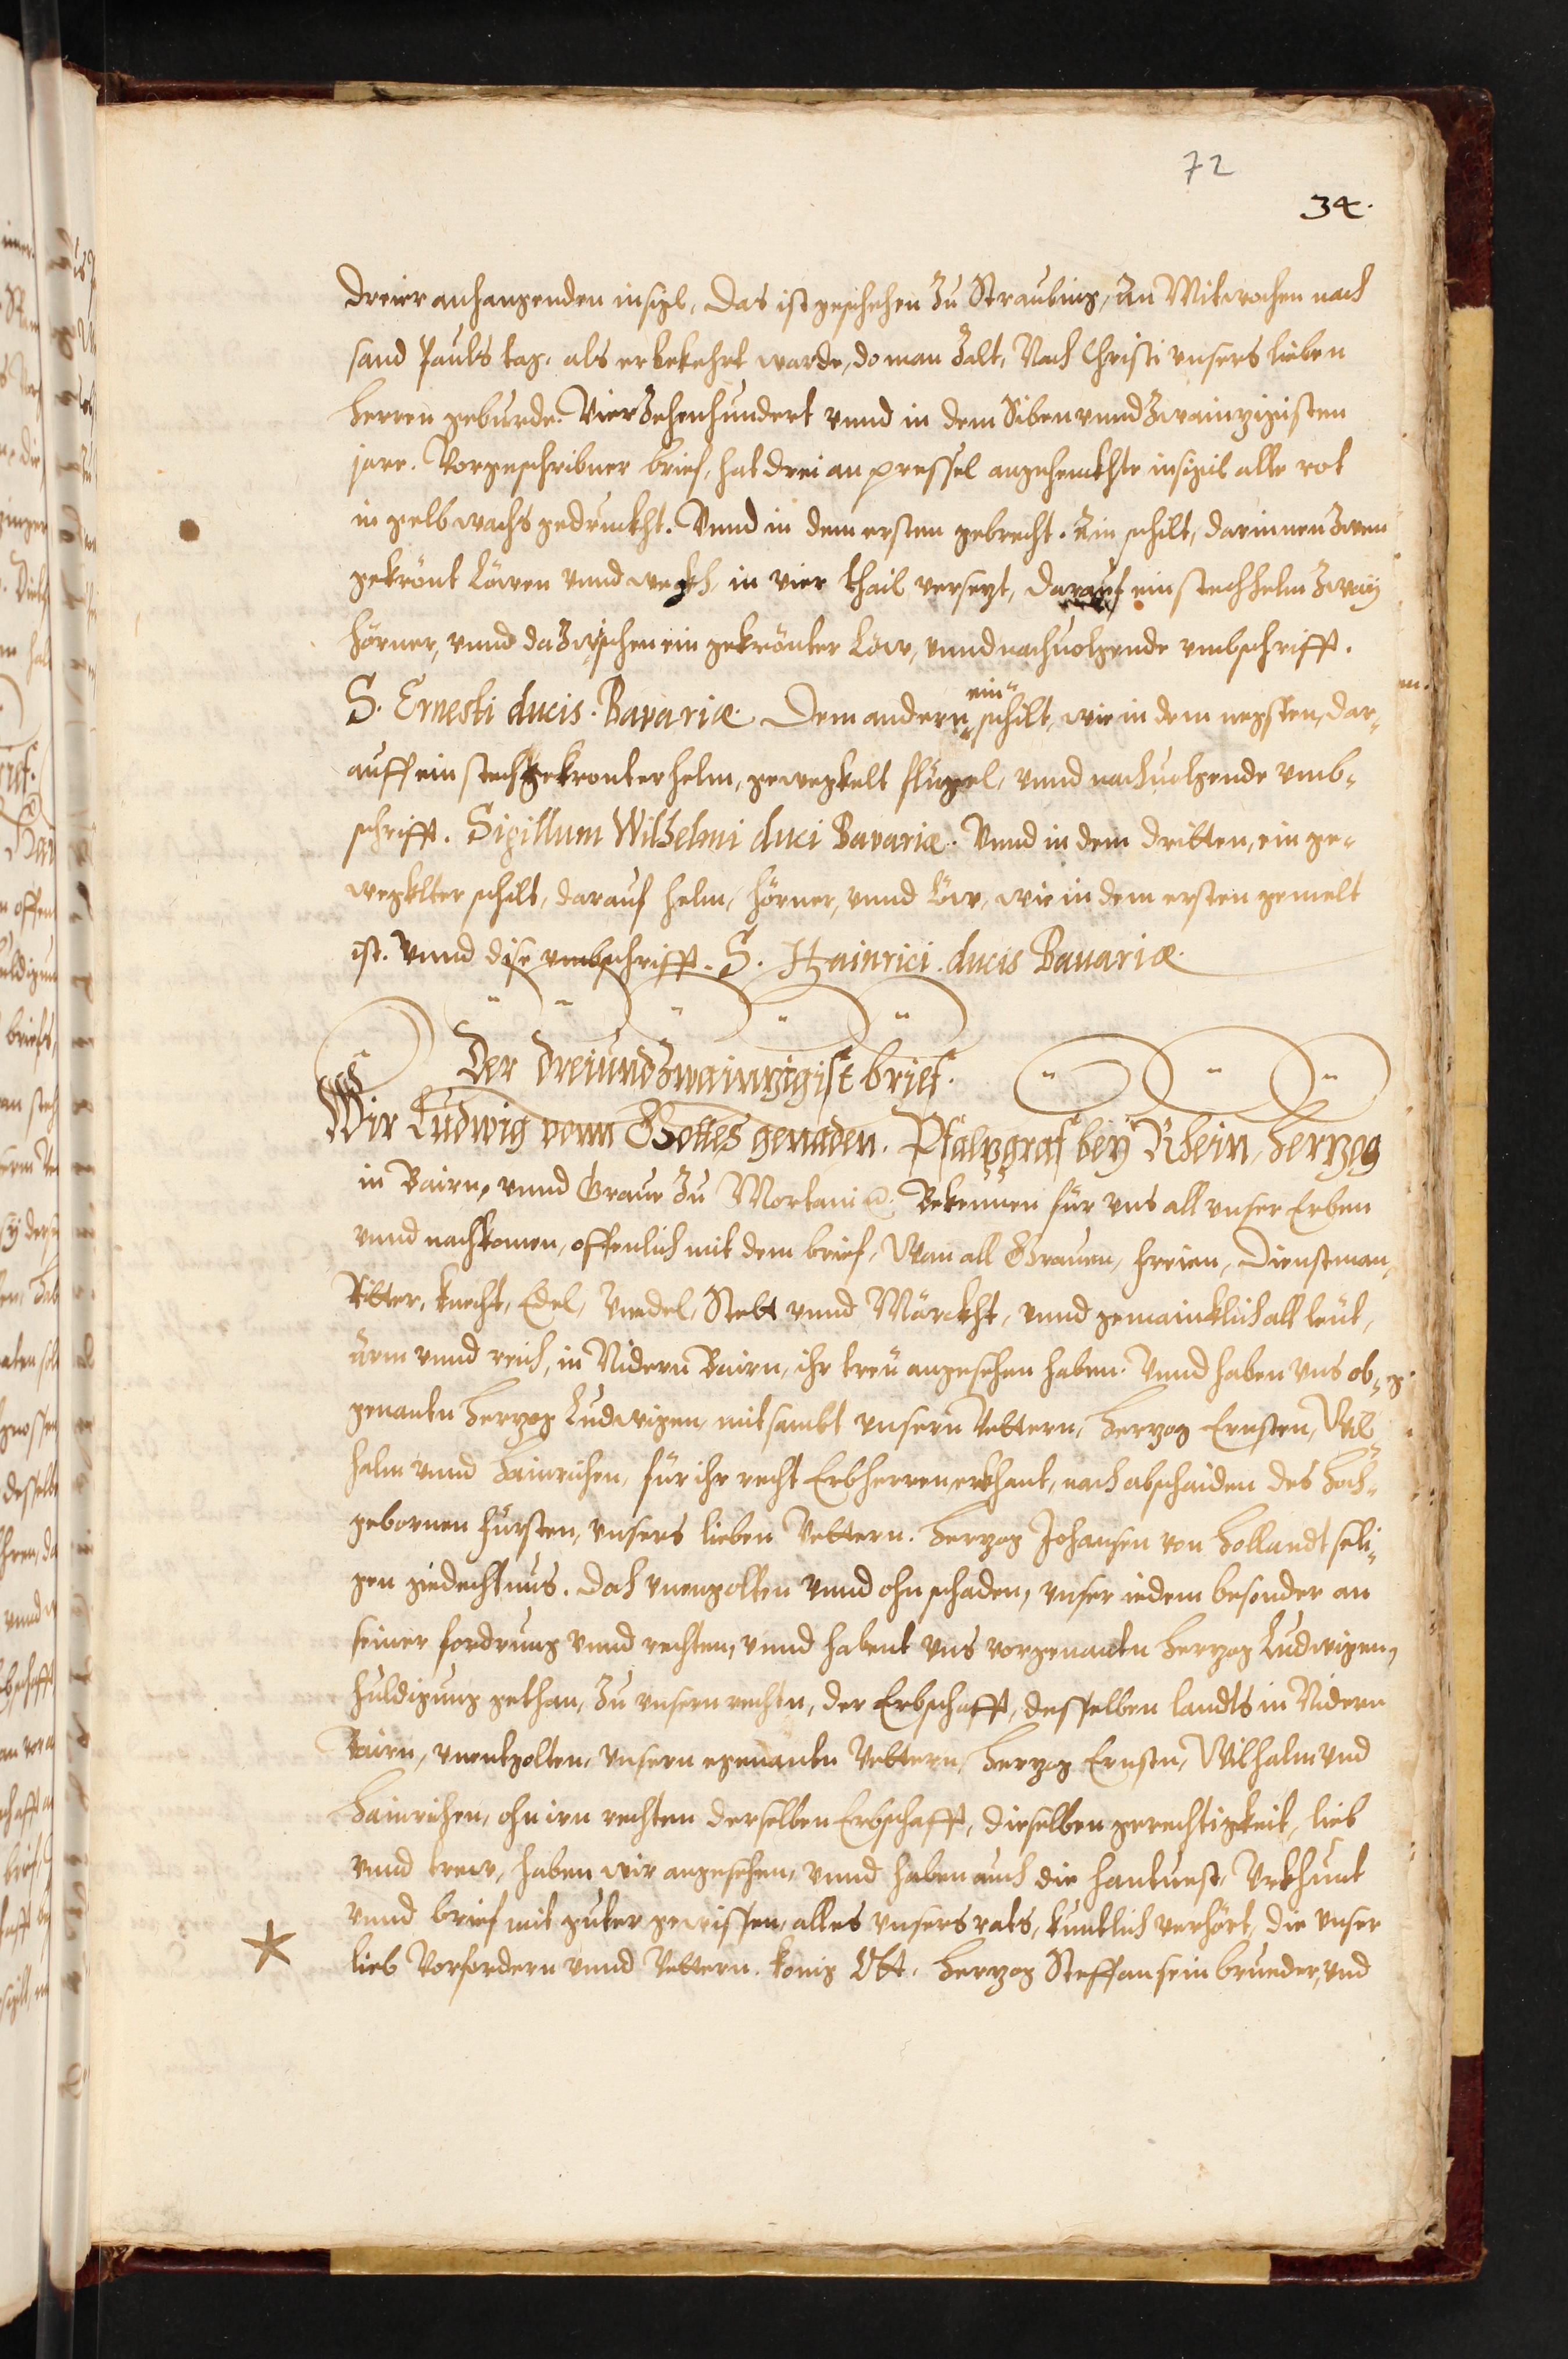 72
34.
dreier anhangenden insigl, Das ist geschehen Zu Straubing, An Mitwochen nach
sand Pauls tag, als er bekehrt warde, do man Zalt, Nach Christi vnsers lieben
Herren geburde. VierZehenhundert vnnd in dem Siben vnnd Zwainzigisten
jare. Vorgeschribner brief, hat drei an pressel angehenckhte insigil alle rot
in gelb wachs gedruckht. Vnnd in dem ersten gebrecht. Ain schilt, darinnen Zwen
gekrönt Löwen vnnd weckh, in vier thail versezt, darauf ein stechhelm Zway
hörner, vnnd daZwischen ein gekrönter Löw, vnnd nachuolgende vmbschrifft.
S. Ernesti ducis. Bavariæ. Dem andern ein schilt, wie in dem negsten, dar„
auff ein stech gekronter helm, geweghelt flugel, vnnd nachuolgende vmb„
schrifft. Sigillum Wilhelmi duci Bavariæ. Vnnd in dem dritten, ein ge„
wegklter schilt, darauf helm, hörner, vnnd Löw, wie in dem ersten gemelt
ist. Vnnd dise vmbschrifft. S. Hainrici. ducis Bauariæ.
Der dreiundZwainzigist brief.
Wir Ludwig vonn Gottes genaden. Pfalzgraf bey Rhein, Herzog
in Bairn, vnnd Graue Zu Mortani Bekennen für vns all vnser Erben
vnnd nachkomen, offenlich mit dem brief, Wan all Grauen, freien, Dienstman,
Ritter, knecht, Edel, Vnedel, Stett vnnd Märckht, vnnd gemaincklich all leüt,
ärm vnnd reich, in Nidern Bairn, ihr treü angesehen haben. Vnnd haben vns ob„
genanten Herzog Ludwigen, mitsambt vnsern Vettern, Herzog Ernsten, Wil
halm vnnd Hainrichen, für ihr recht Erbherren erkhant, nach abschaiden des Hoch„
gebornen Fürsten, vnsers lieben Vettern. Herzog Johansen von Hollandt seli„
gen giedechtnus. Doch vnengolten vnnd ohn schaden, vnser iedem besonder an
seiner fordrung vnnd rechten, vnnd habent vns vorgenanten Herzog Ludwigen,
huldigung gethan, Zu vnsern rechtn, der Erbschafft, desselben landts in Nidern
Bairn, vnentgolten, vnsern egenantn Vettern, Herzog Ernsten, Wilhalm vnd
Hainrichen, ohn irn rechten derselben Erbschafft, dieselben gerechtigkeit, lieb
vnnd trew, haben wir angesehen, vnnd haben auch die hantuest, Vrkhunt
vnnd brief mit guter gewissen, alles vnsers rats, kuntlich verhört, die vnser
lieb Vorfordern vnnd Vettern. Konig Ott. Herzog Steffan sein brueder, vnd